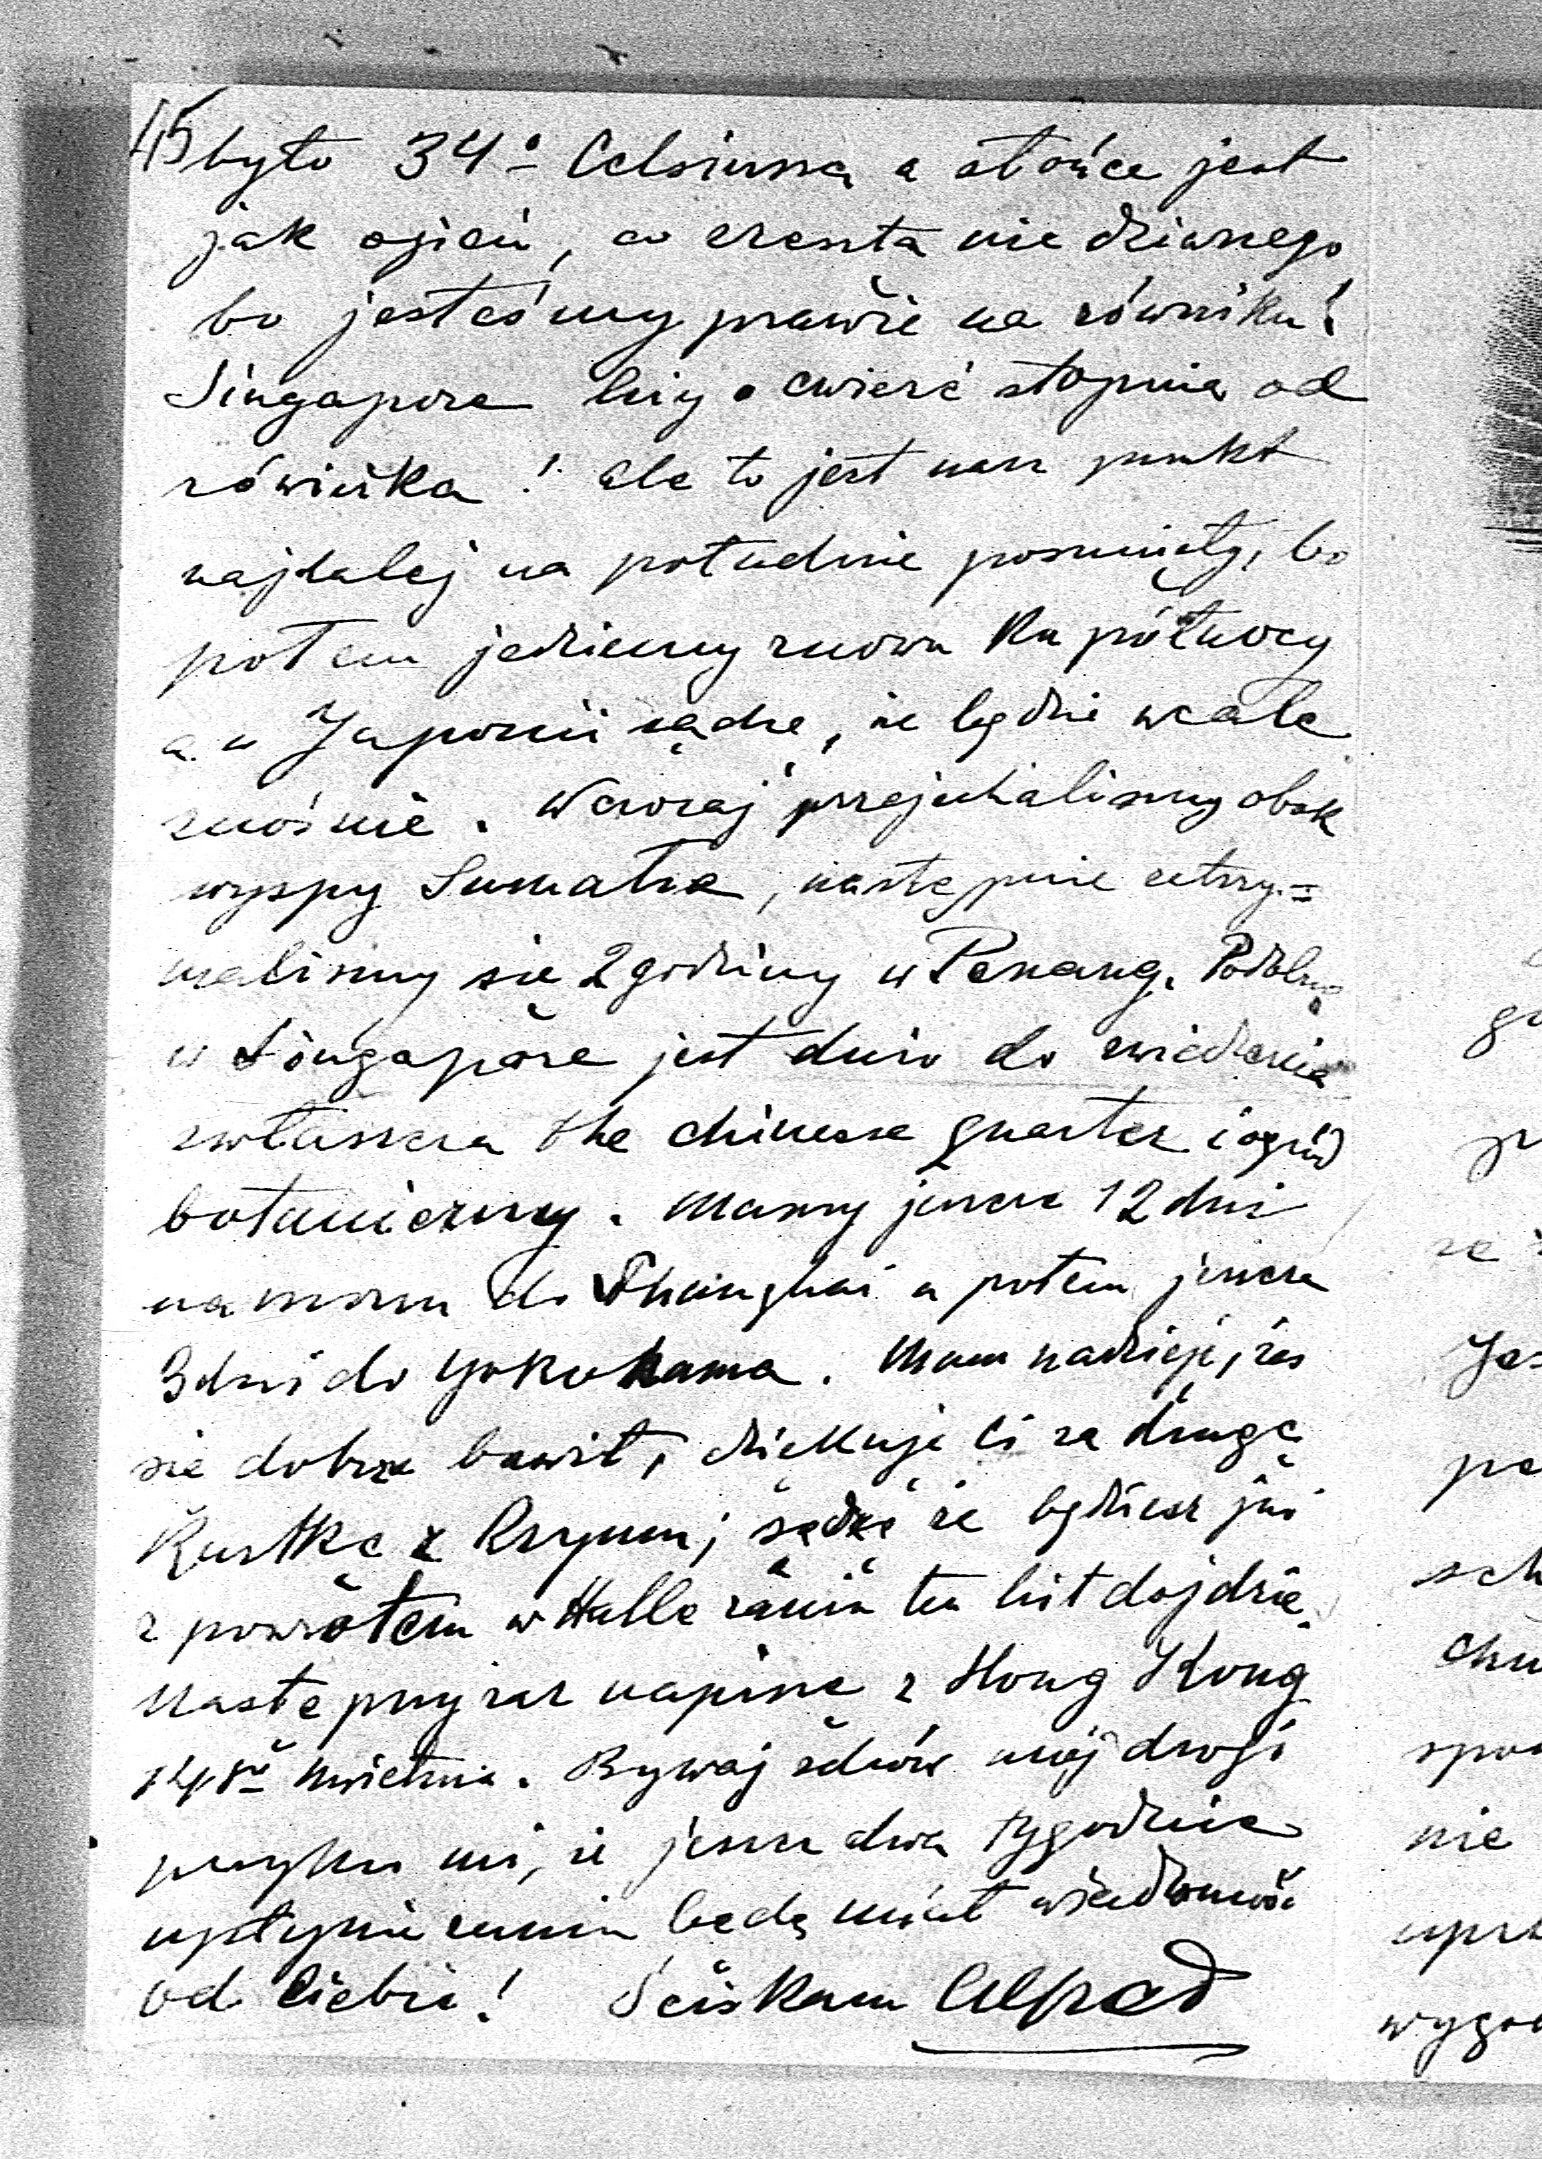 45 było 34° Celsiusza a słońce jest
jak ogień, co zreszta nie dziwnego
bo jesteśmy prawie na równiku!
Singapore leży o cwierć stopnia od
równika! ale to jest nasz punkt
najdalej na południe posunięty, bo
potem jedziemy znowu ku północy
a w Japonii sądzę, że będzie wcale
znośnie. Wczoraj przejechalismy obok
wyspy Sumatra, następnie zatrzy=
malismy sie 2 godziny w Penang. Podobno
w Singapore jest dużo do zwiedzenia
zwłaszcza the chinese quarter i ogród
botaniczny. Mamy jeszcze 12 dni
na morzu do Shanghai a potem jeszcze
3 dni do Yokohama. Mam nadzieję, żes
sie dobrze bawił, dziekuje Ci za drugą
Kartke z Rzymu; sądzę że będziesz już
z powrotem w Halle zanim ten list dojdzie.
Nastepny raz napisze z Hong Kong
14go Kwietnia. Bywaj zdrów mój drogi
przykro mi, że jeszcze dwa tygodnie
upłynie zanim będę miał wiadomość
od Ciebie! Ściskam Alfred